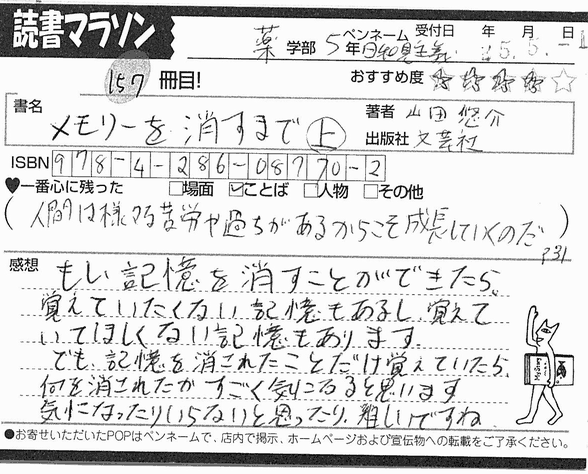 読書マラソン
薬 学部 5年 ペンネーム 日和見主義 受付日 年 月 日
25.5.-1
157 冊目! おすすめ度 ☆☆☆☆☆
書名 メモリーを消すまで 上
著者 山田 悠介
出版社 文芸社
ISBN 978-4-286-08770-2
♥一番心に残った □場面 ☑ことば □人物 □その他
(人間は様々な苦労や過ちがあるからこそ成長していくのだ)
P31
感想
もし記憶を消すことができたら、
覚えていたくない記憶もあるし、覚えて
いてほしくない記憶もあります。
でも、記憶を消されたことだけ覚えていたら、
何を消されたかすごく気になると思います
気になったりいらないと思ったり、難しいですね
●お寄せいただいたPOPはペンネームで、店内で掲示、ホームページおよび宣伝物への転載をご了承ください。